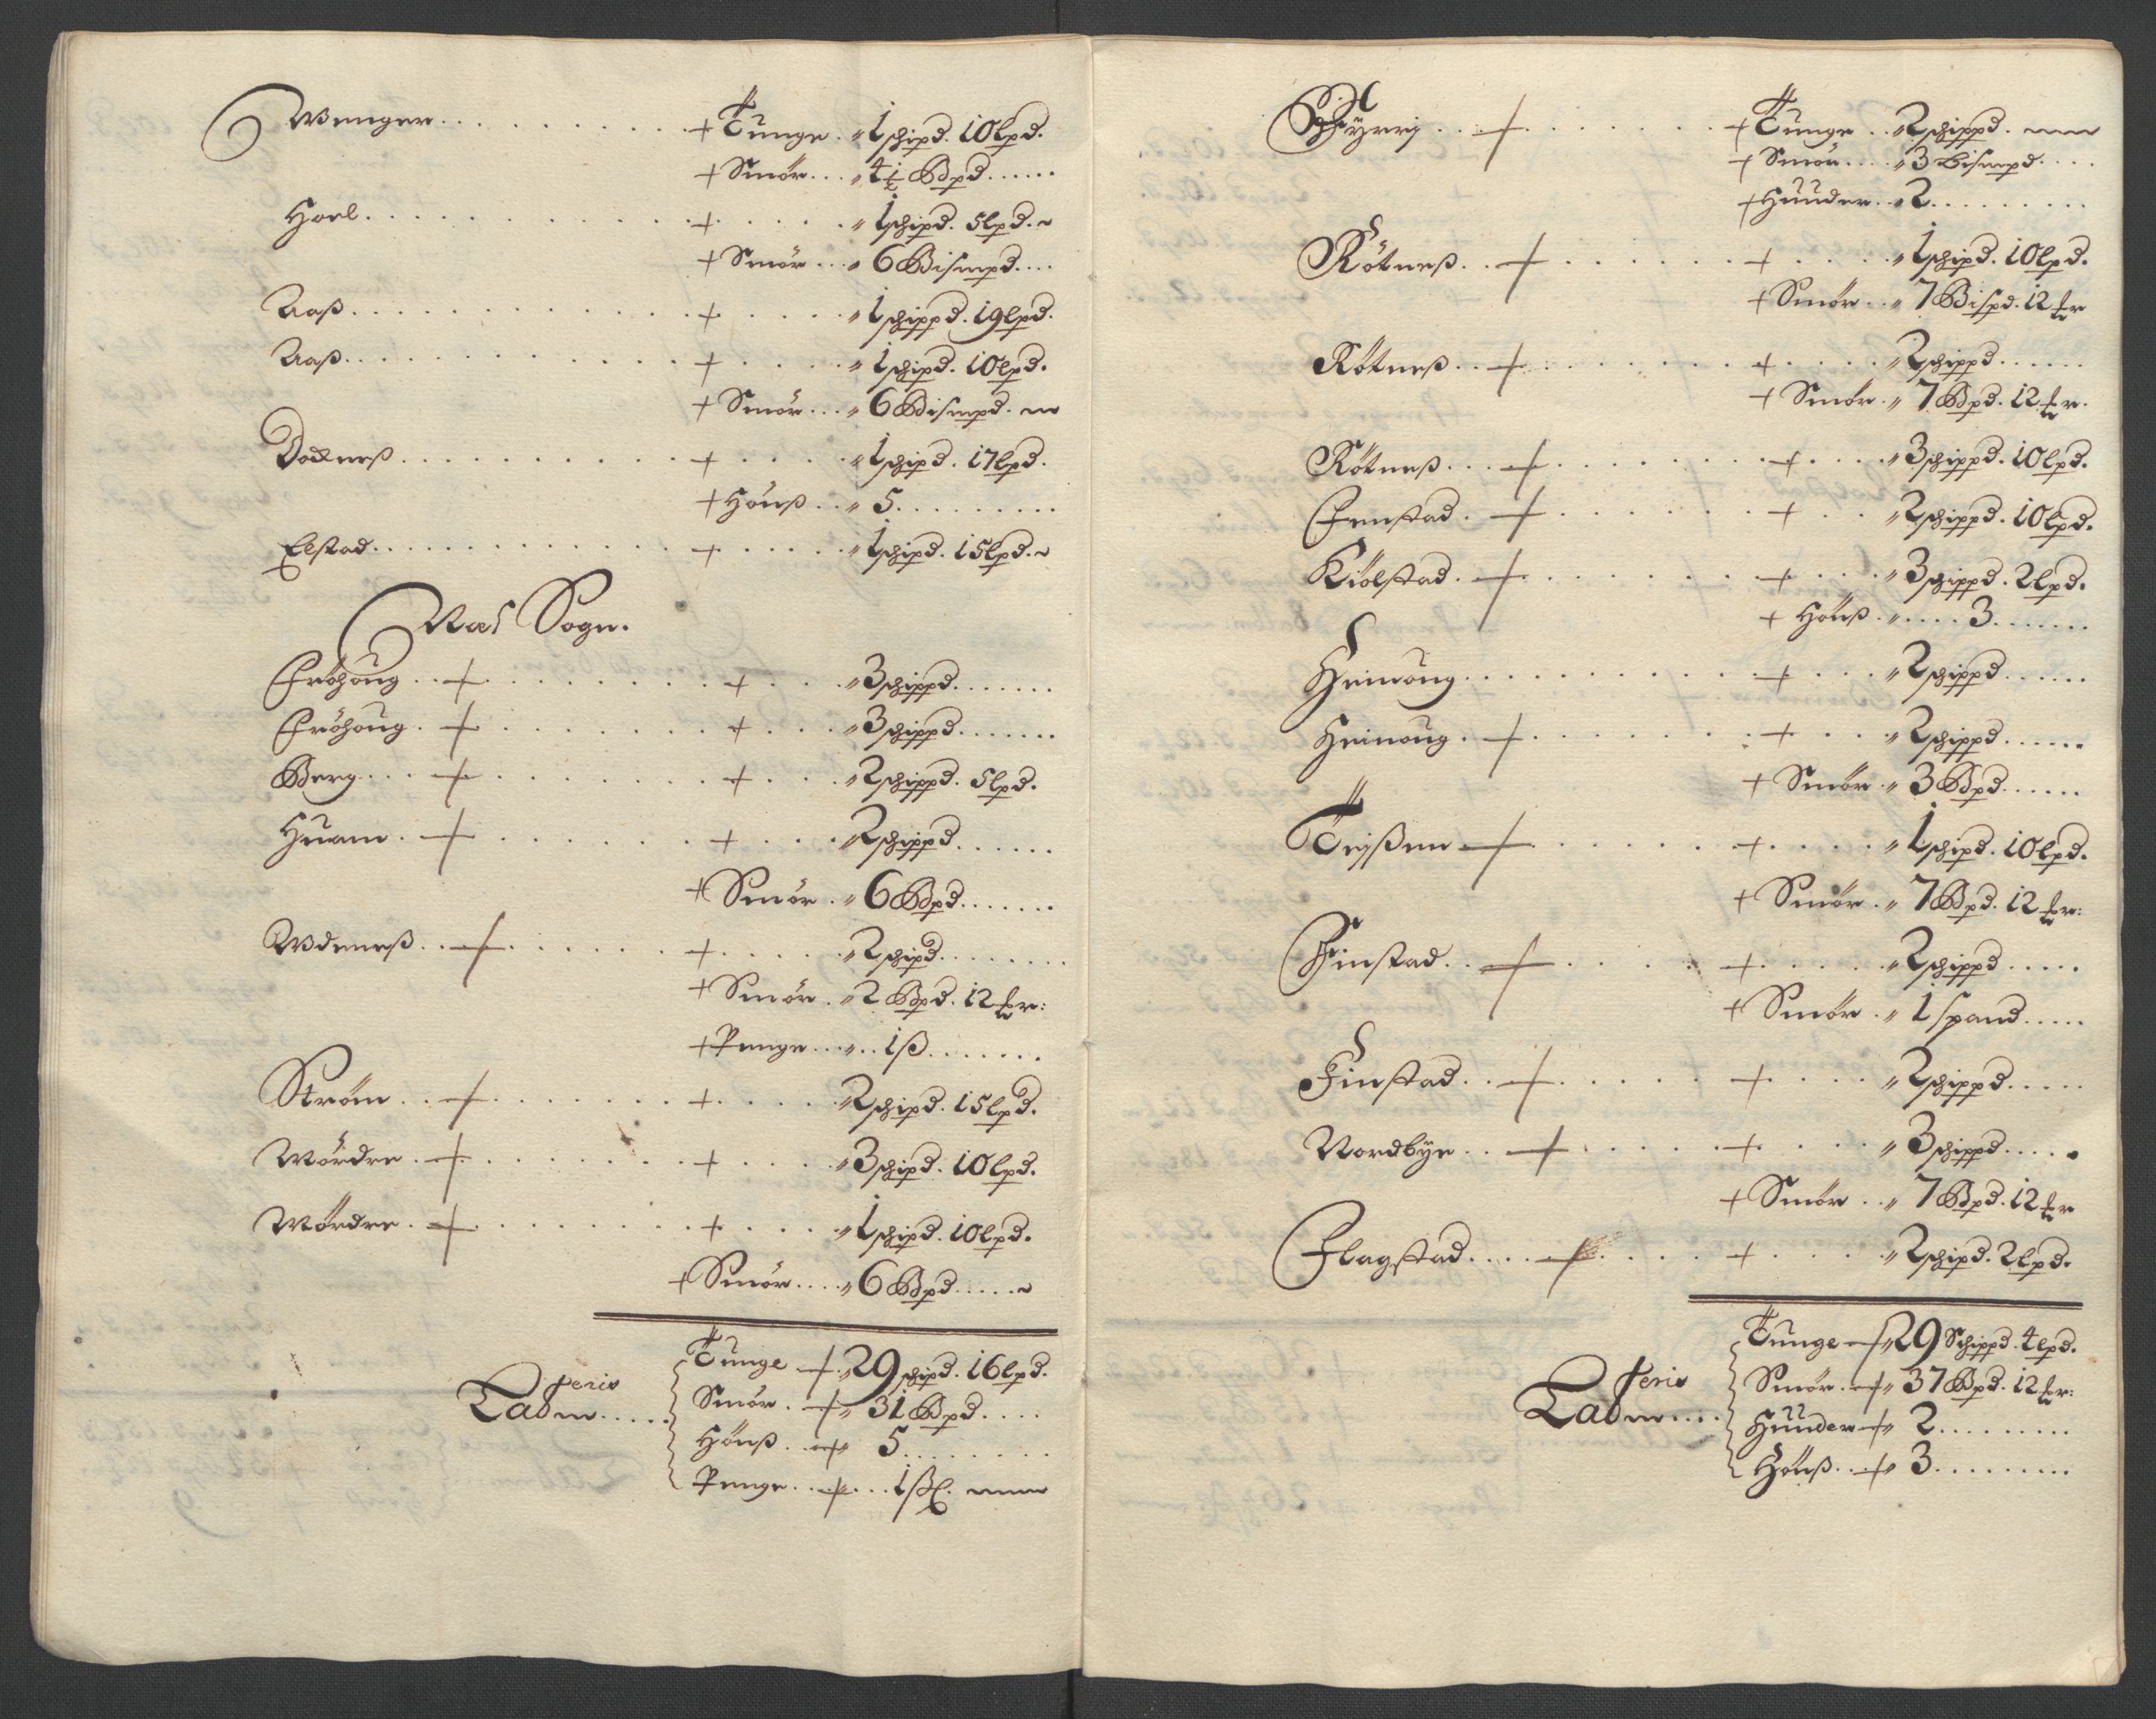 Wenger . . . + Tunge . 1 schipd. 10 lpd.
+ Smör . . . 4½ Bpd . . .
Hoel . . . + . . . 1 schipd. 5 lpd.
+ Smör . . . 6 Bismpd . . .
Aaß . . . + . . . 1 schippd. 19 lpd.
Aaß . . . + . . . 1 schipd. 10 lpd.
+ Smör . . . 6 Bismpd.
Dockneß . . . + . . . 1 schipd. 17 lpd.
+ Hönß . . 5 . . .
Elstad . . . + . . . 1 schipd. 15 lpd.
Næs Sogn.
Fröhoug . . + . . . + . . . 3 schippd . . .
Fröhoug . + . . . + . . . 3 schippd . . .
Berg . . . + . . . + . . . 2 schippd. 5 lpd.
Huam . + . . . + . . . 2 schippd . . .
+ Smör . 6 Bpd . . .
Wdeneß . . + . . . + . . . 2 schipd . . .
+ Smör . 2 Bpd. 12 mr:
+ Penge . . . 1 ß . . .
Ström . . + . . . + . . . 2 schipd. 15 lpd.
Mördre . + . . . + . . . 3 schipd. 10 lpd.
Mördre . + . . . + . . . 1 schipd. 10 lpd.
+ Smör . . . 6 Bpd . . .
Lateris
Tunge + 29 schipd. 16 lpd.
Smör . + 31 Bpd . . .
Hönß . . + 5 . . .
Penge . . + . . . 1 ß
+ Tunge . . 2 schippd.
+ Smör . . . 3 Bismpd . . .
+ Huuder . . 2 . . .
Rötneß . . + . . . + . . . 1 schipd. 10 lpd.
+ Smör . . 7 Bispd. 12 mr
Rötneß . . + . . . + . . . 2 schippd . . .
+ Smör . 7 Bpd. 12 mr.
Rötneß . . . + . . . + . . . 3 schippd. 10 lpd.
Fenstad . + . . . + . . . 2 schippd. 10 lpd.
Kiölstad . + . . . + . . . 3 schippd. 2 lpd.
+ Hönß . . . . 3 . . .
Henioug . . . + . . . 2 schippd . . .
Heinoug . + . . . + . . . 2 schippd . . .
+ Smör . 3 Bpd . . .
Tejßen + . . . + . . . 1 schipd. 10 lpd.
+ Smör . 7 Bpd. 12 mr:
Finstad . . + . . . + . . . 2 schippd . . .
+ Smör . 1 spand . . .
Finstad . . + . . . + . . . 2 schippd . . .
Nordbÿe . . + . . . + . . . 3 schippd . . .
+ Smör . . 7 Bpd. 12 mr
Flagstad . . . + . . . + . . . 2 schipd. 2 lpd.
Lateris
Tunge + 29 Schippd. 4 lpd.
Smör . + 37 Bpd. 12 mr:
Huuder + 2 . . .
Hönß . . + 3 . . .